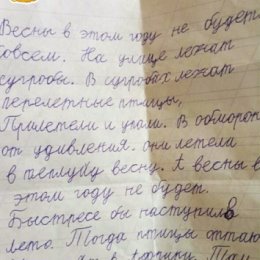 Весны в этом году не будет
совсем. На улице лежат
сугробы. В сугробах лежат
перелетные птицы,
Прилетели и упали. В обморок
от удивления. они летела
в теплую весну. А весны в
этом году не будет.
Быстресе бы наступило
лето. Тогда птицы оттаю